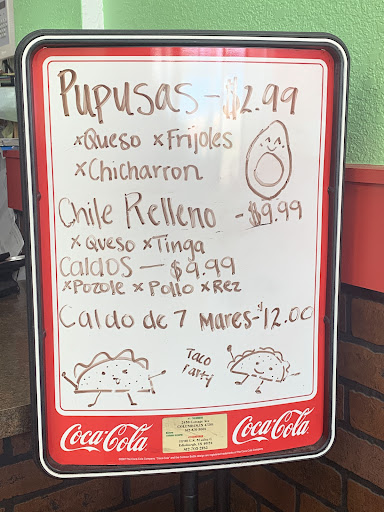 Pupusas - $2.99
xQueso xFrijoles
xChicharron
Chile Relleno - $9.99
x Queso xTinga
Caldos - $9.99
xPozole x Pollo x Rez
Caldo de 7 mares - $12.00
Taco
Party
Coca-Cola
Coca-Cola